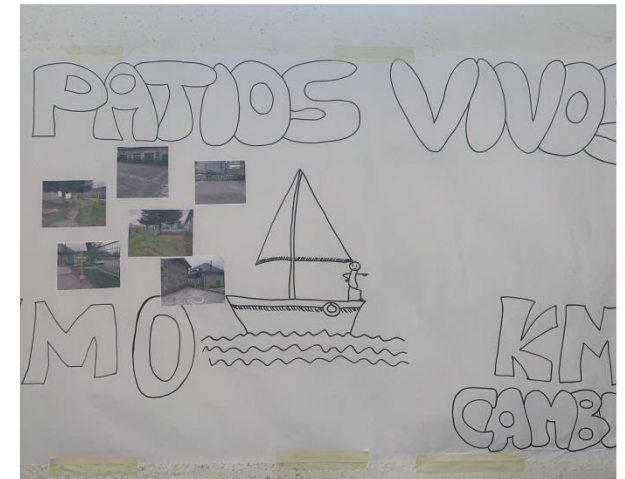 PATIOS VIVOS
MO KM
CAMBI